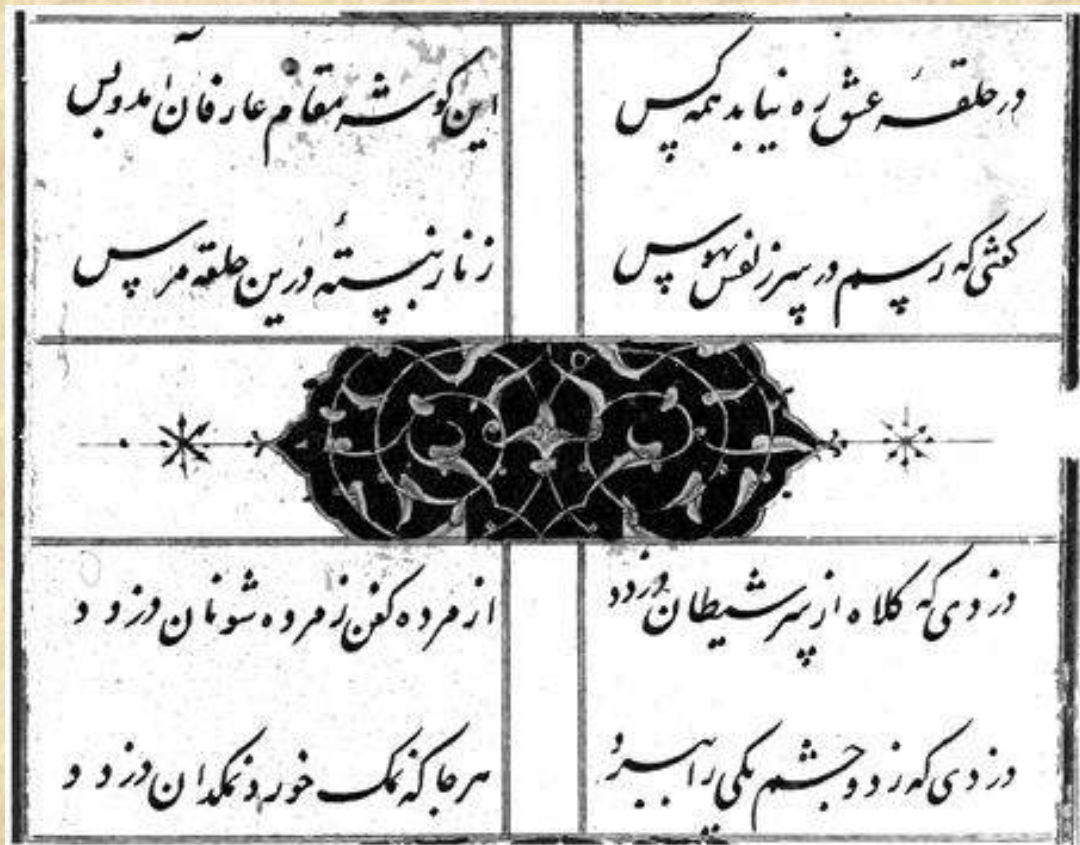 در حلقهٔ عشق ره نیابد همه کس
این کوشه مقام عارفان آمد و بس
کفتی که رسم در سر زلفش بهوس
زنار نبستهٔ درین حلقه مرس
دزدی که کلاه از سر شیطان دزدد
از مرده کفن ز مرده شو نان دزدد
دزدی که ز دو چشم یکی را ببرد
هر جا که نمک خورد نمکدان دزدد